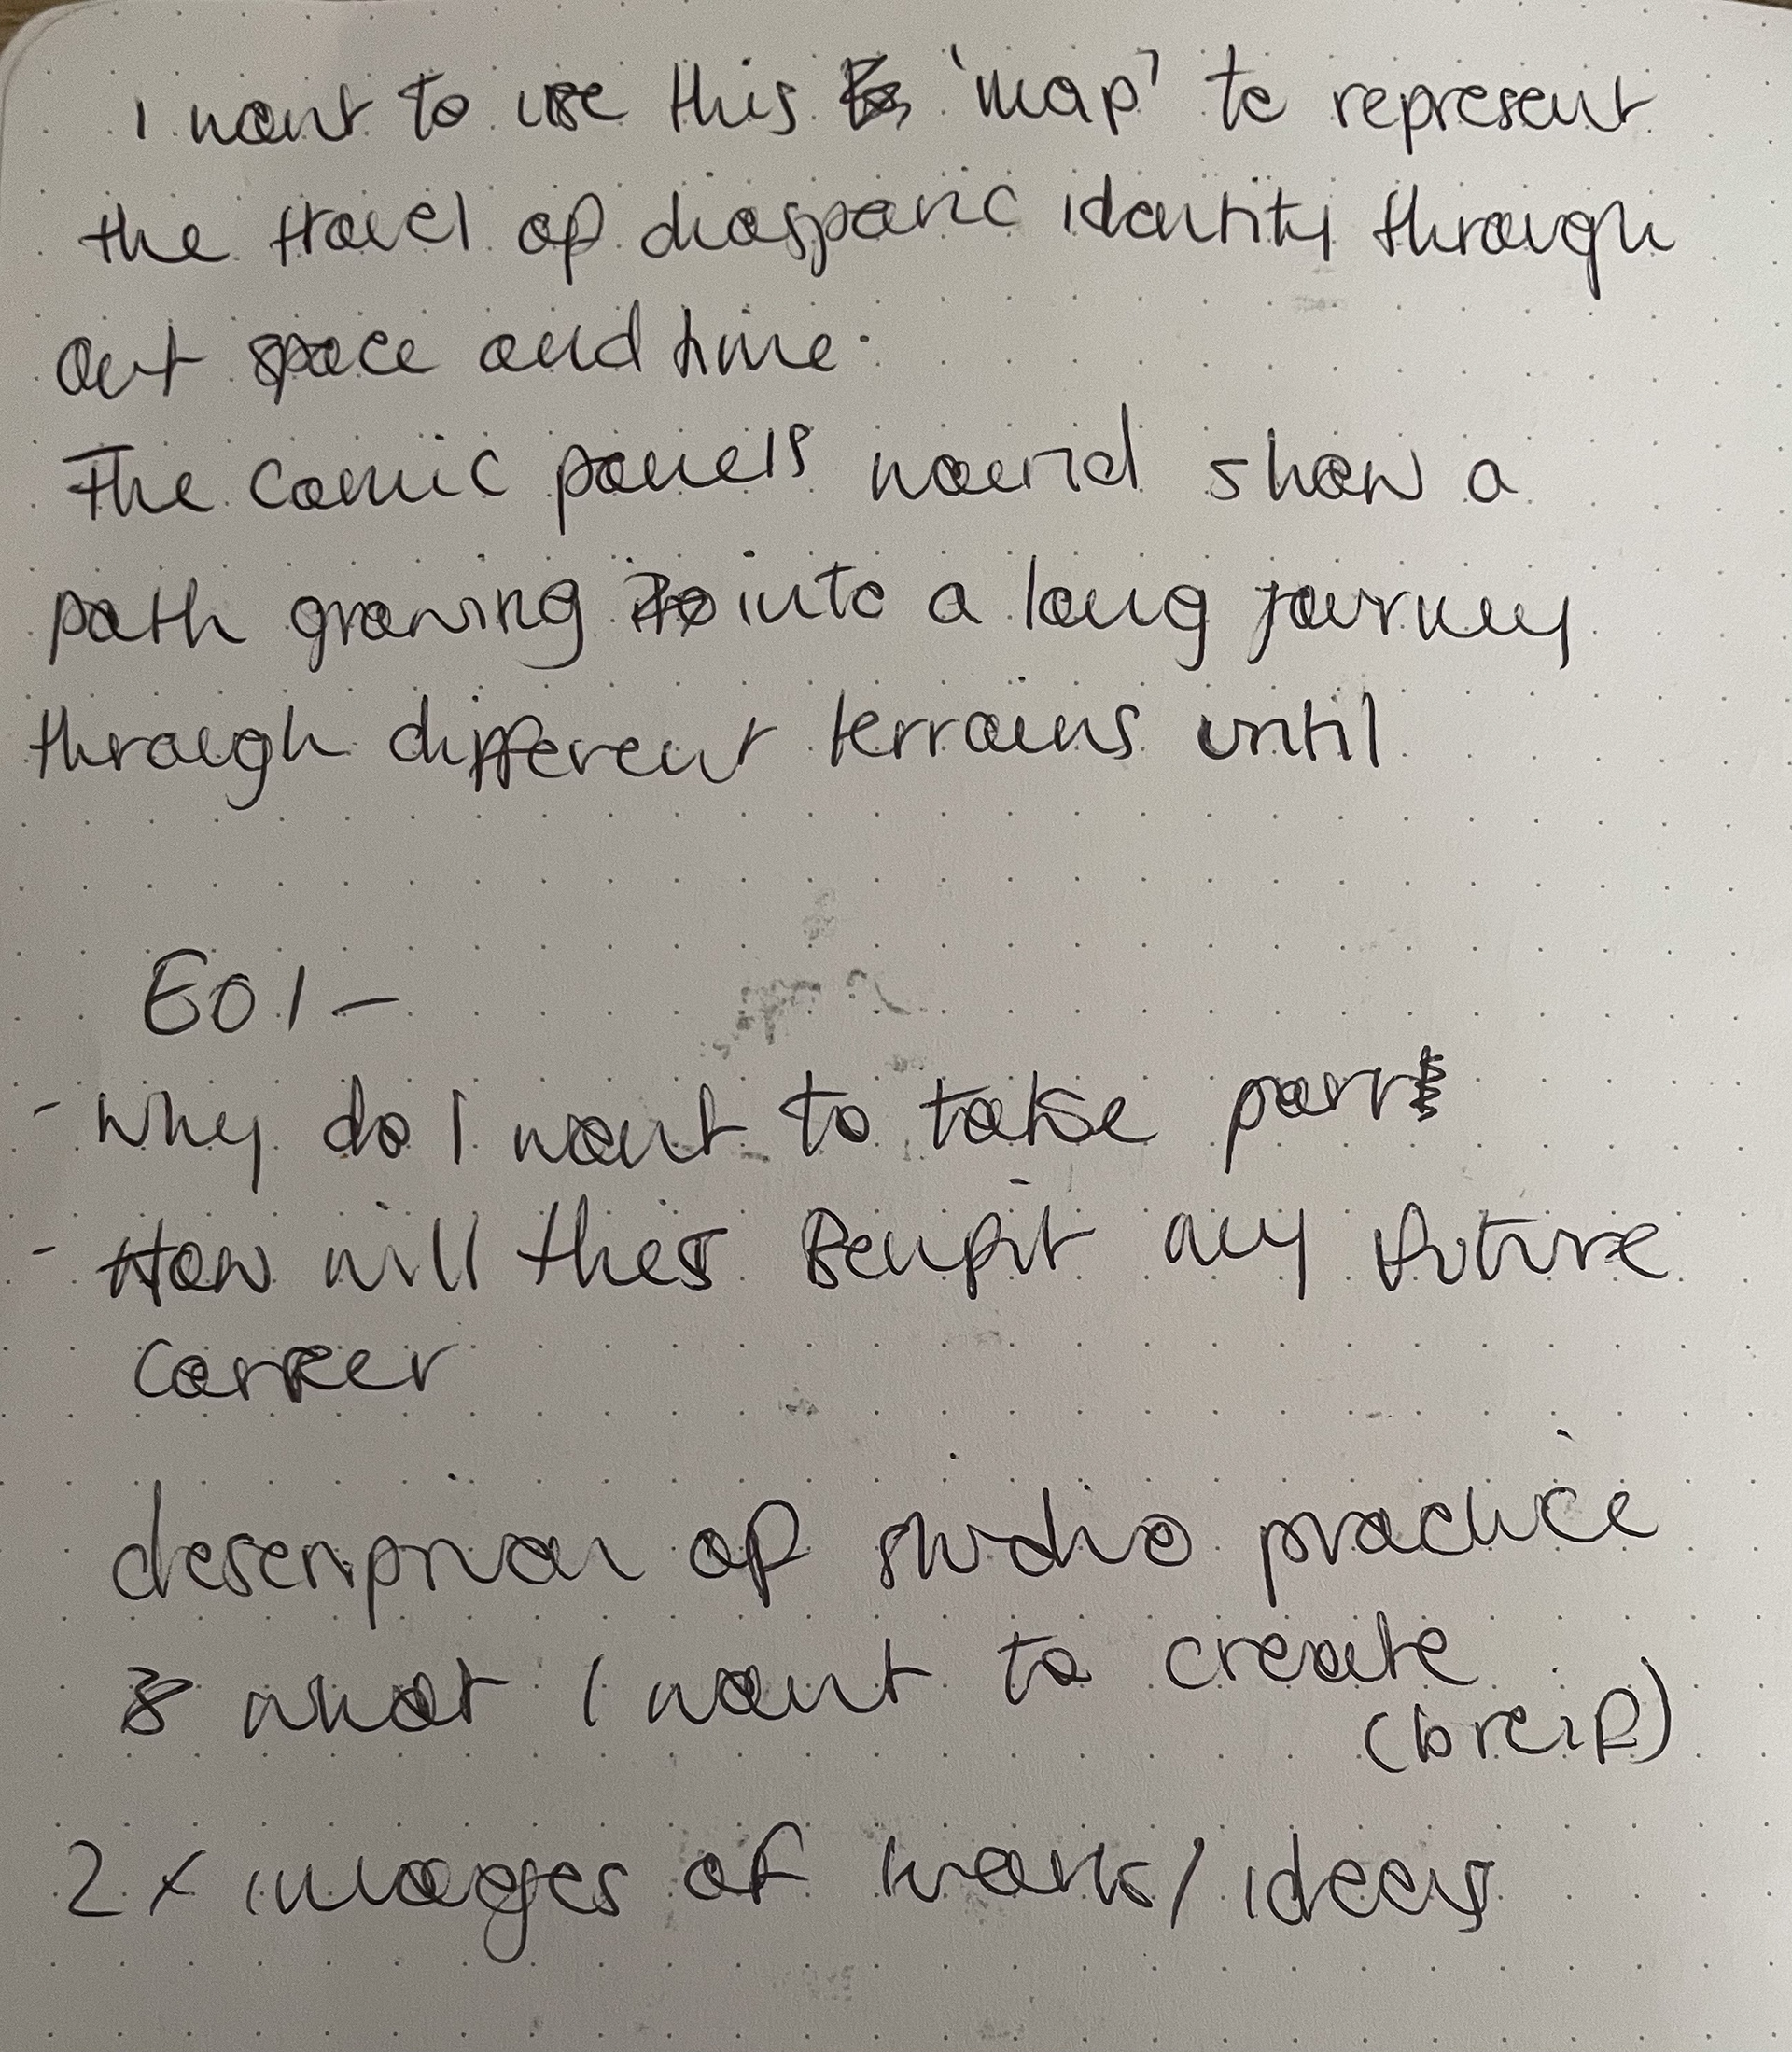 I want to use this 'map' to represent
the travel of diasporic identity through
out space and time.
The comic panels would show a
path growing into a long journey
through different terrains until
EOI -
- Why do I want to take part
- How will this Benefit my future
career
description of studio practice
& what I want to create
(breif)
2 x images of work / ideas